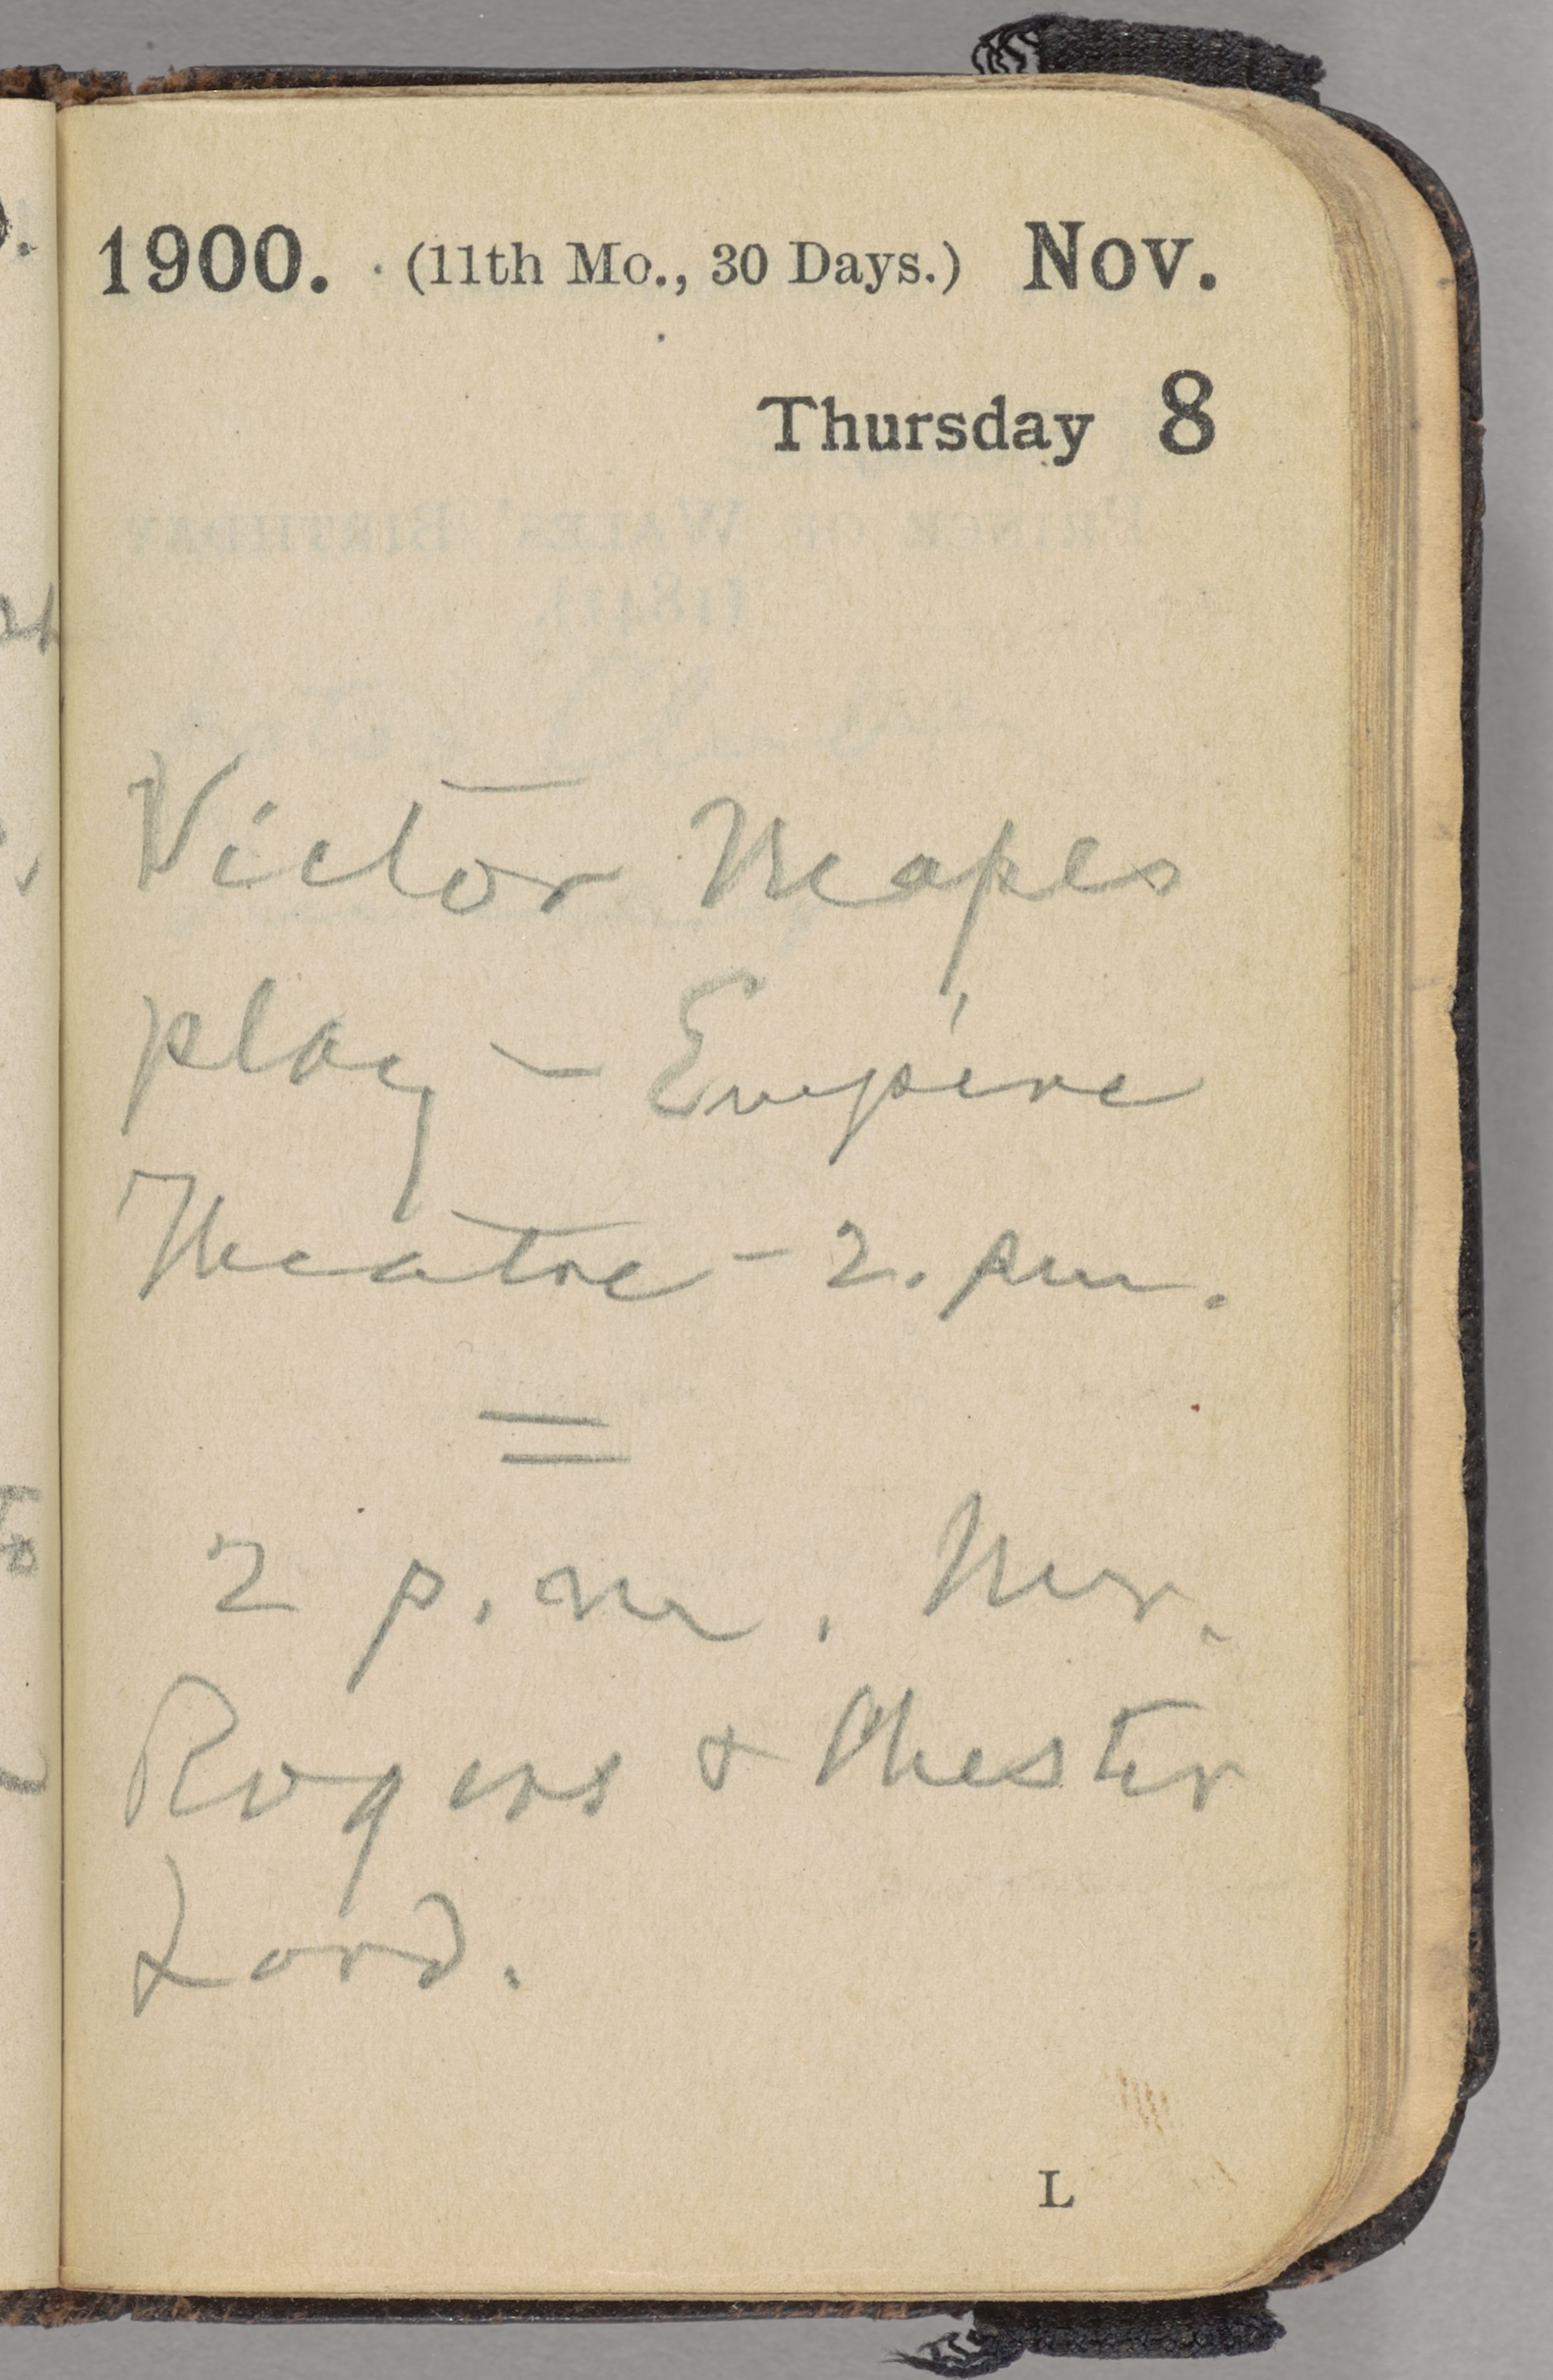 1900. (11th Mo., 30 Days.) Nov.
Thursday 8
Victor Mapes
play – Empire
Theatre – 2. pm.
=
2 p.m. Mr.
Rogers & Chester
Lord.
L